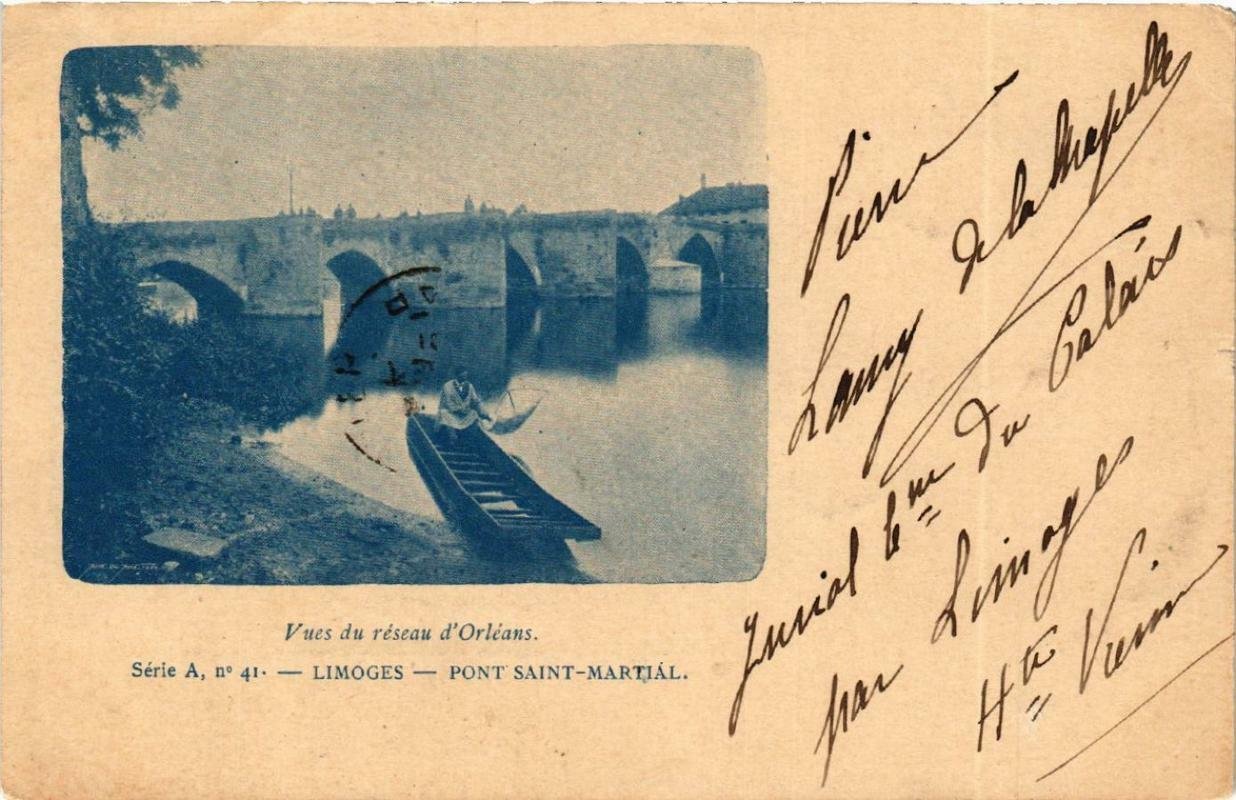 Vues du réseau d'Orléans.
Série A, nº 41. — LIMOGES — PONT SAINT-MARTIAL.
Pierre
Lamy de la Chapelle
du Palais
par Limoges
Hte Vienne